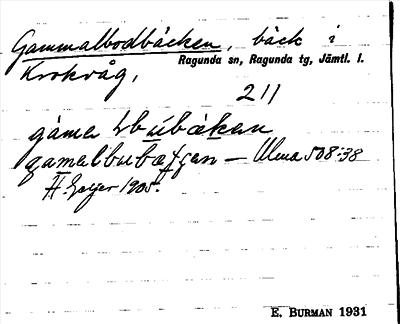 Gammalbodbäcken, bäck i
Krokvåg, Ragunda sn, Ragunda tg, Jämtl. l.
211
gamalbubæ̂ - Ulma 508:38
H. Geijer 1905.
E. BURMAN 1931